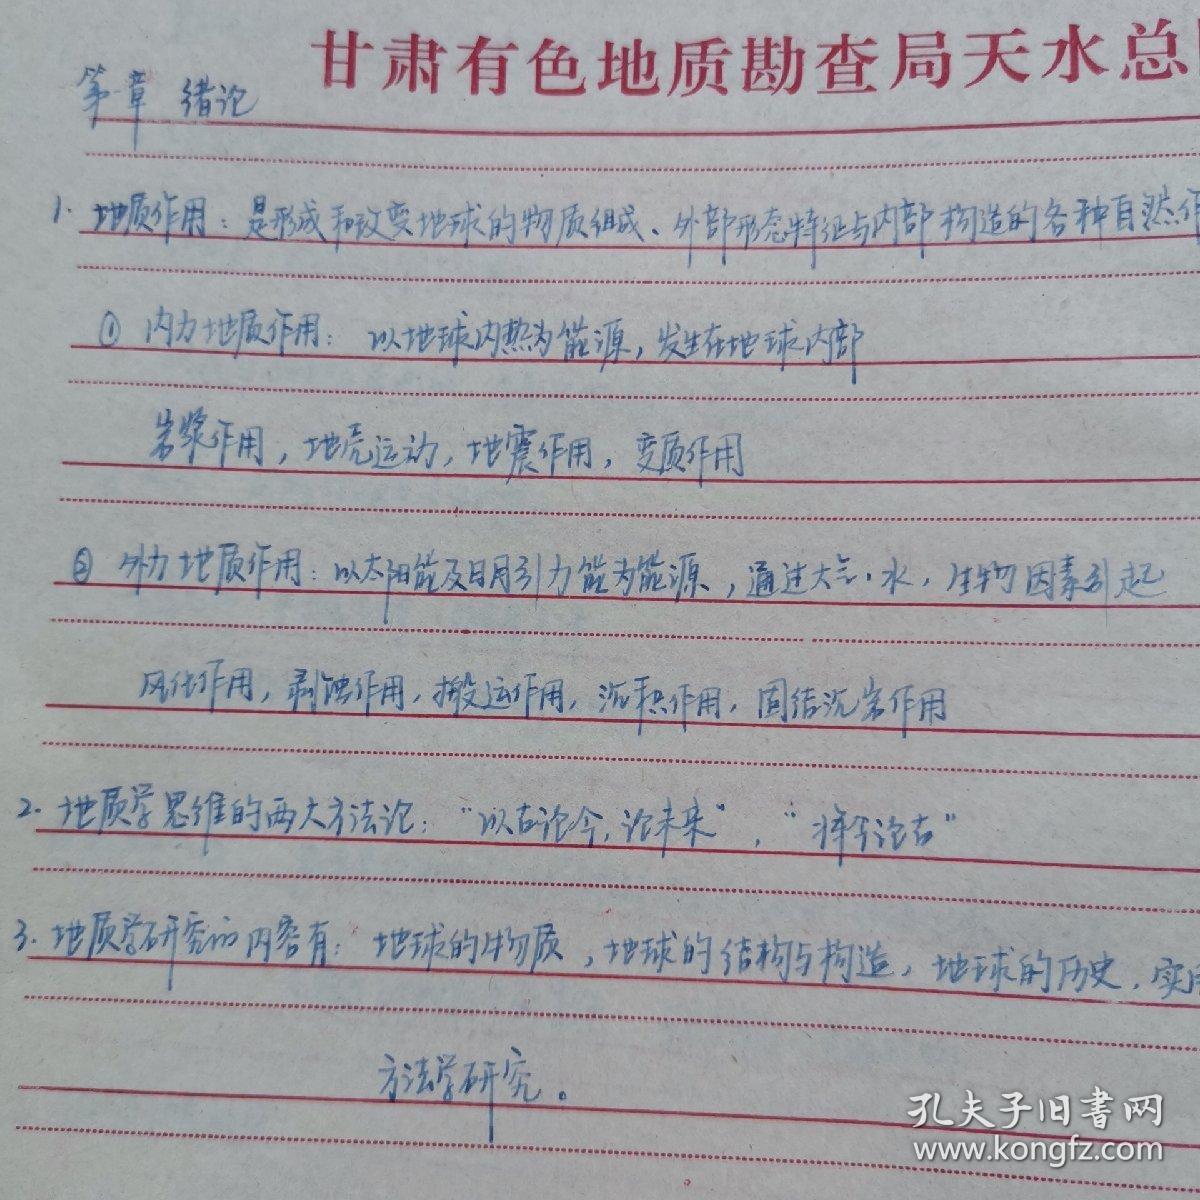 甘肃有色地质勘查局天水总
第一章 绪论
1. 地质作用：是形成和改变地球的物质组成、外部形态特征与内部构造的各种自然作
① 内力地质作用：以地球内热为能源，发生在地球内部
岩浆作用，地壳运动，地震作用，变质作用
② 外力地质作用：以太阳能及日月引力能为能源，通过大气、水、生物因素引起
风化作用，剥蚀作用，搬运作用，沉积作用，固结沉岩作用
2. 地质学思维的两大方法论：“以古论今，论未来”，“将今论古”
3. 地质学研究的内容有：地球的物质，地球的结构与构造，地球的历史，实
方法学研究。
孔夫子旧书网
www.kongfz.com